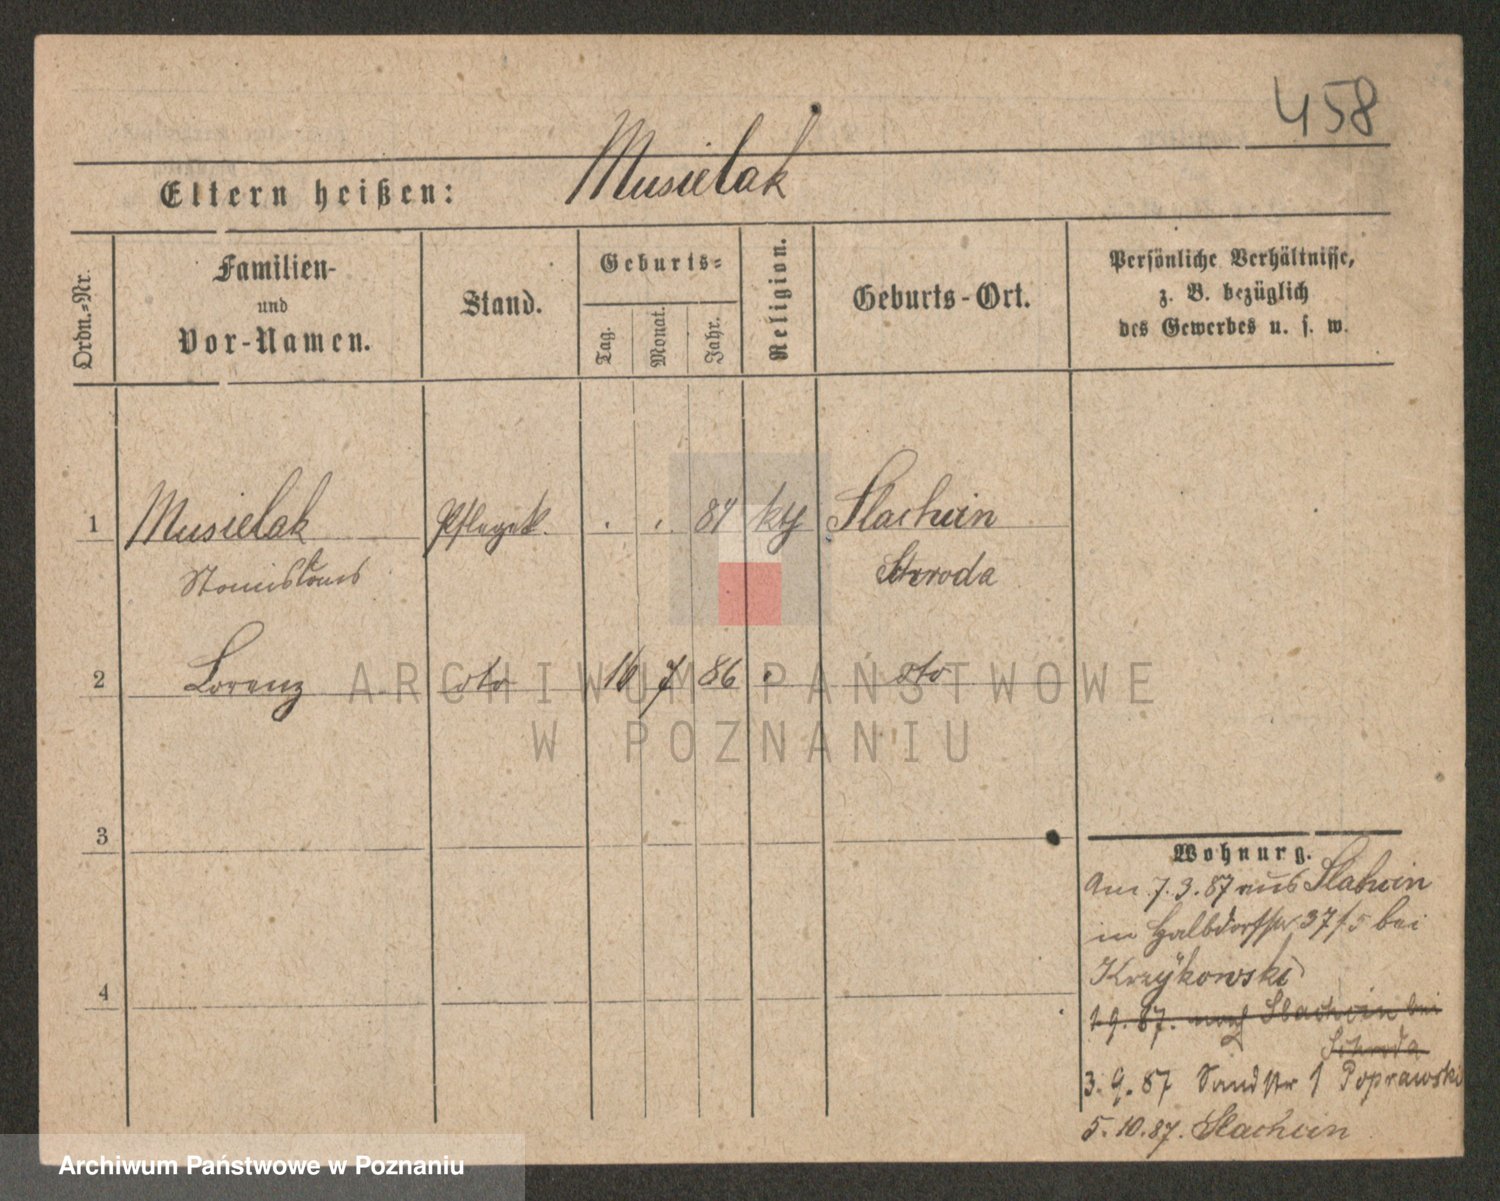 458
Eltern heißen: Musielak
Ordn.-Nr.
Familien-
und
Vor-Namen.
Stand.
Geburts-
Tag.
Monat.
Jahr.
Religion.
Geburts-Ort.
Persönliche Verhältnisse,
z. B. bezüglich
des Gewerbes u. s. w.
1 Musielak Pflegek. . . 84 kth Slachcin
Stanislaus Schroda
2 Lorenz dto 16 7 86 " dto
3
4
Wohnung.
Am 7.3.87 aus Slachcin
in Halbdorfstr 37/5 bei
Krzykowski
1.9.87. nach Slachcin bei
Schroda
3.9.87 Sandstr 1 Poprawski
5.10.87. Slachcin
ARCHIWUM PAŃSTWOWE
W POZNANIU
Archiwum Państwowe w Poznaniu